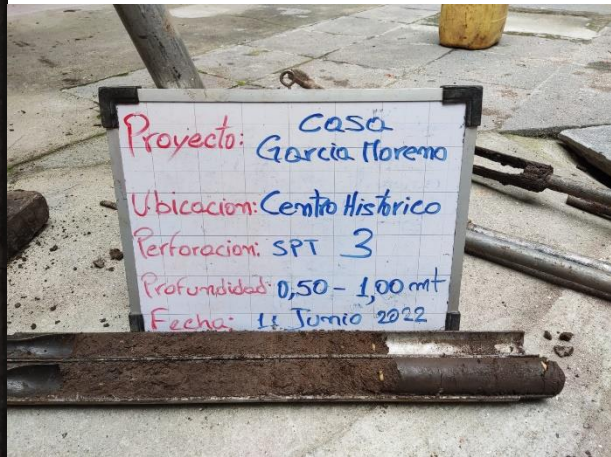 Proyecto: Casa
Garcia Moreno
Ubicacion: Centro Historico
Perforacion: SPT 3
Profundidad: 0,50 - 1,00 mt
Fecha: 11 Junio 2022